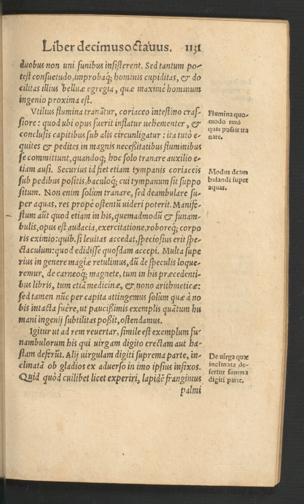 Liber decimusoctauus. 1131
duobus non uni funibus insisterent. Sed tantum po-
test consuetudo, improbaq; hominis cupiditas, & do
cilitas illius belluæ egregia, quæ maximè hominum
ingenio proxima est.
Vtilius flumina tranãtur, coriaceo intestino cras-
siore: quod ubi opus fuerit inflatur uehementer, &
conclusis capitibus sub alis circunligatur: ita tutò e-
quites & pedites in magnis necessitatibus fluminibus
se committunt, quandoq; hoc solo tranare auxilio e-
tiam ausi. Securius id fiet etiam tympanis coriaceis
sub pedibus positis, baculoq; cui tympanum sit suppo
situm. Non enim solùm tranare, sed deambulare su-
per aquas, res propè ostentũ uideri poterit. Manife-
stum aũt quod etiam in his, quemadmodũ & funam-
bulis, opus est audacia, exercitatione, roboreq; corpo
ris eximio: quib. si leuitas accedat, speciosius erit spe-
ctaculum: quod edidisse quosdam accepi. Multa supe
rius in genere magiæ retulimus, dũ de speculis loque-
remur, de carneoq; magnete, tum in his præcedenti-
bus libris, tum etiã medicinæ, & nono arithmeticæ:
sed tamen nũc per capita attingemus solùm quæ à no
bis intacta fuêre, ut paucissimis exemplis quãtum hu
mani ingenij subtilitas possit, ostendamus.
Igitur ut ad rem reuertar, simile est exemplum fu-
nambulorum his qui uirgam digito erectam aut ha-
stam deferũt. Alij uirgulam digiti suprema parte, in-
clinatã ob gladios ex aduerso in imo ipsius infixos.
Quid quòd cuilibet licet experiri, lapidẽ frangimus
palmi
Flumina quo-
modo tutò
quis possit tra
nare.
Modus deam
bulandi super
aquas.
De uirga quæ
inclinata de-
fertur summa
digiti parte.